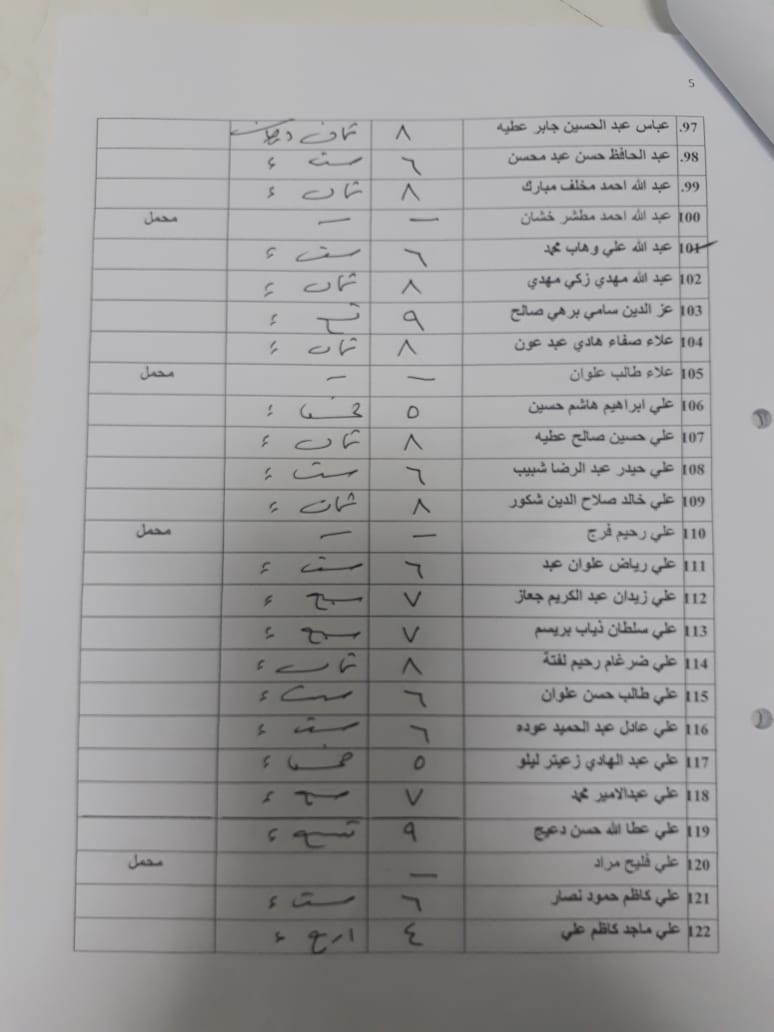 5
97. عباس عبد الحسين جابر عطيه ٨ ثمان درجات
98. عبد الحافظ حسن عبد محسن ٦ ست ء
99. عبد الله احمد مخلف مبارك ٨ ثمان ء
100 عبد الله احمد مطشر خشان — — محمل
101 عبد الله علي وهاب محمد ٦ ست ء
102 عبد الله مهدي زكي مهدي ٨ ثمان ء
103 عز الدين سامي برهي صالح ٩ تسع ء
104 علاء صفاء هادي عبد عون ٨ ثمان ء
105 علاء طالب علوان — — محمل
106 علي ابراهيم هاشم حسين ٥ خمسة ء
107 علي حسين صالح عطيه ٨ ثمان ء
108 علي حيدر عبد الرضا شبيب ٦ ست ء
109 علي خالد صلاح الدين شكور ٨ ثمان ء
110 علي رحيم فرج — — محمل
111 علي رياض علوان عبد ٦ ست ء
112 علي زيدان عبد الكريم جعاز ٧ سبع ء
113 علي سلطان ذياب بريسم ٧ سبع ء
114 علي ضرغام رحيم لفتة ٨ ثمان ء
115 علي طالب حسن علوان ٦ ست ء
116 علي عادل عبد الحميد عوده ٦ ست ء
117 علي عبد الهادي زعيتر ليلو ٥ خمسة ء
118 علي عبدالامير محمد ٧ سبع ء
119 علي عطا الله حسن دعيج ٩ تسع ء
120 علي فليح مراد — محمل
121 علي كاظم حمود نصار ٦ ست ء
122 علي ماجد كاظم علي ٤ اربع ء